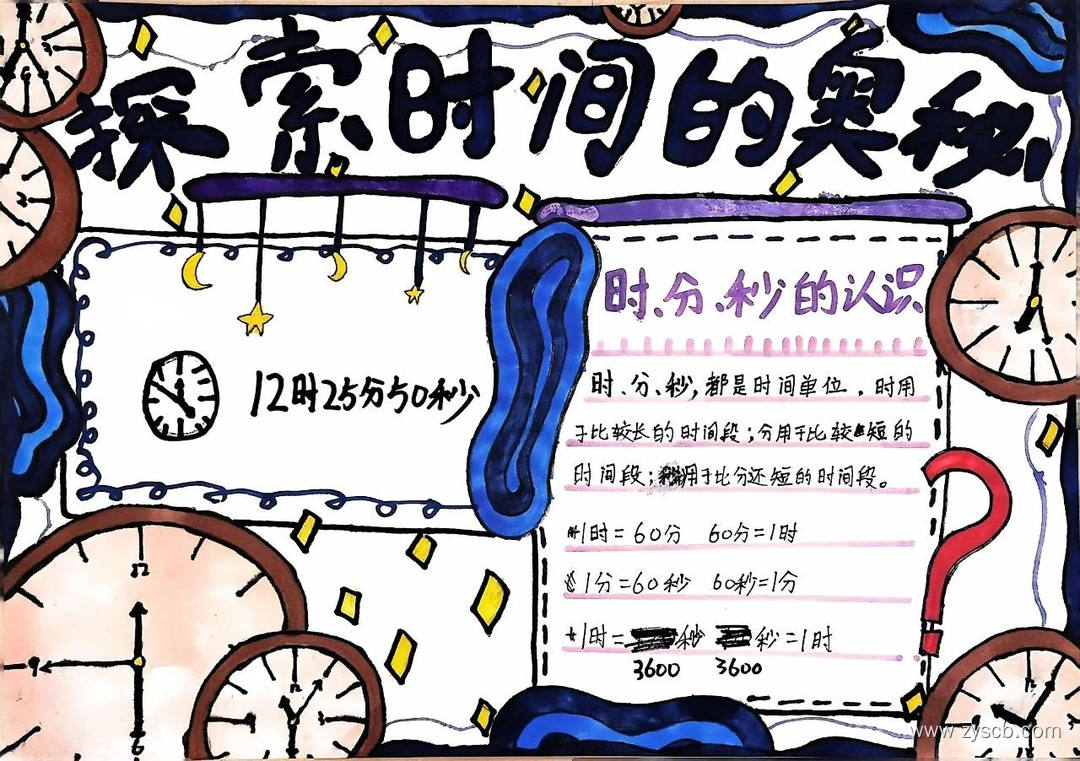 探索时间的奥秘
12时25分50秒
时、分、秒的认识
时、分、秒，都是时间单位，时用
于比较长的时间段；分用于比较短的
时间段；秒用于比分还短的时间段。
1时=60分 60分=1时
1分=60秒 60秒=1分
1时=3600秒 3600秒=1时
12
9
6
www.zyscb.com